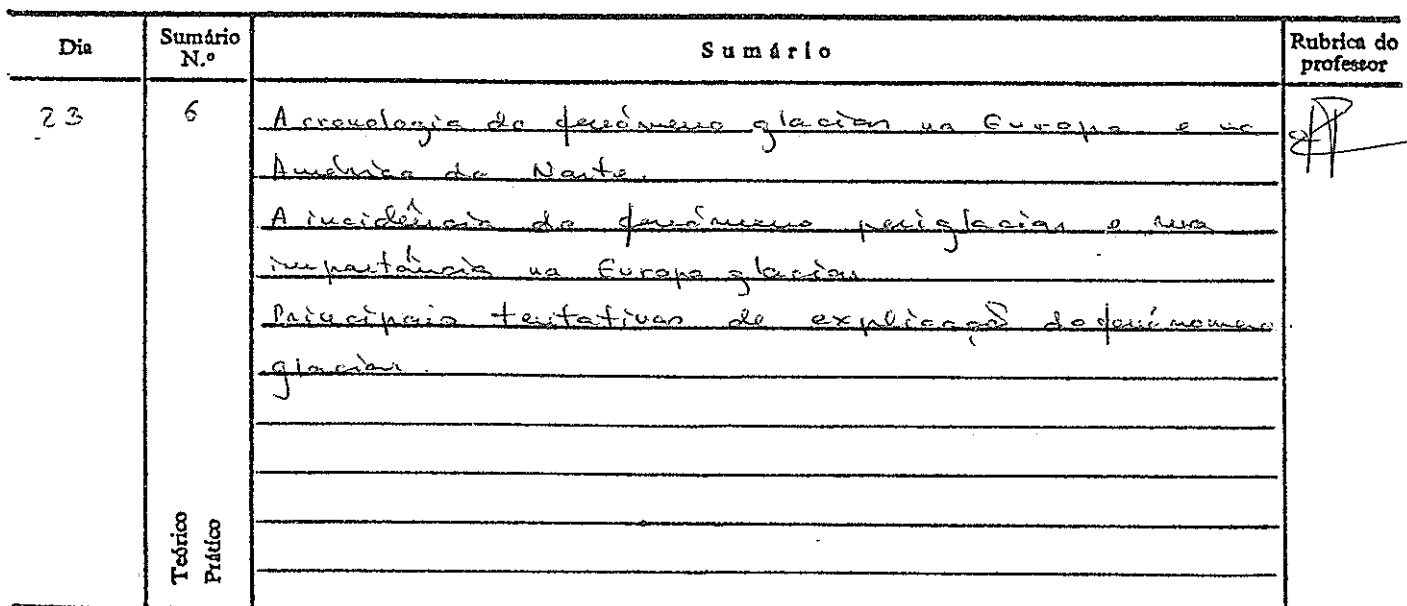 Dia
Sumário N.º
Sumário
Rubrica do professor
23
6
A cronologia do fenómeno glaciar na Europa e na
América do Norte.
A incidência do fenómeno periglaciar e sua
importância na Europa glaciar
Principais tentativas de explicação do fenómeno
glaciar.
Teórico
Prático